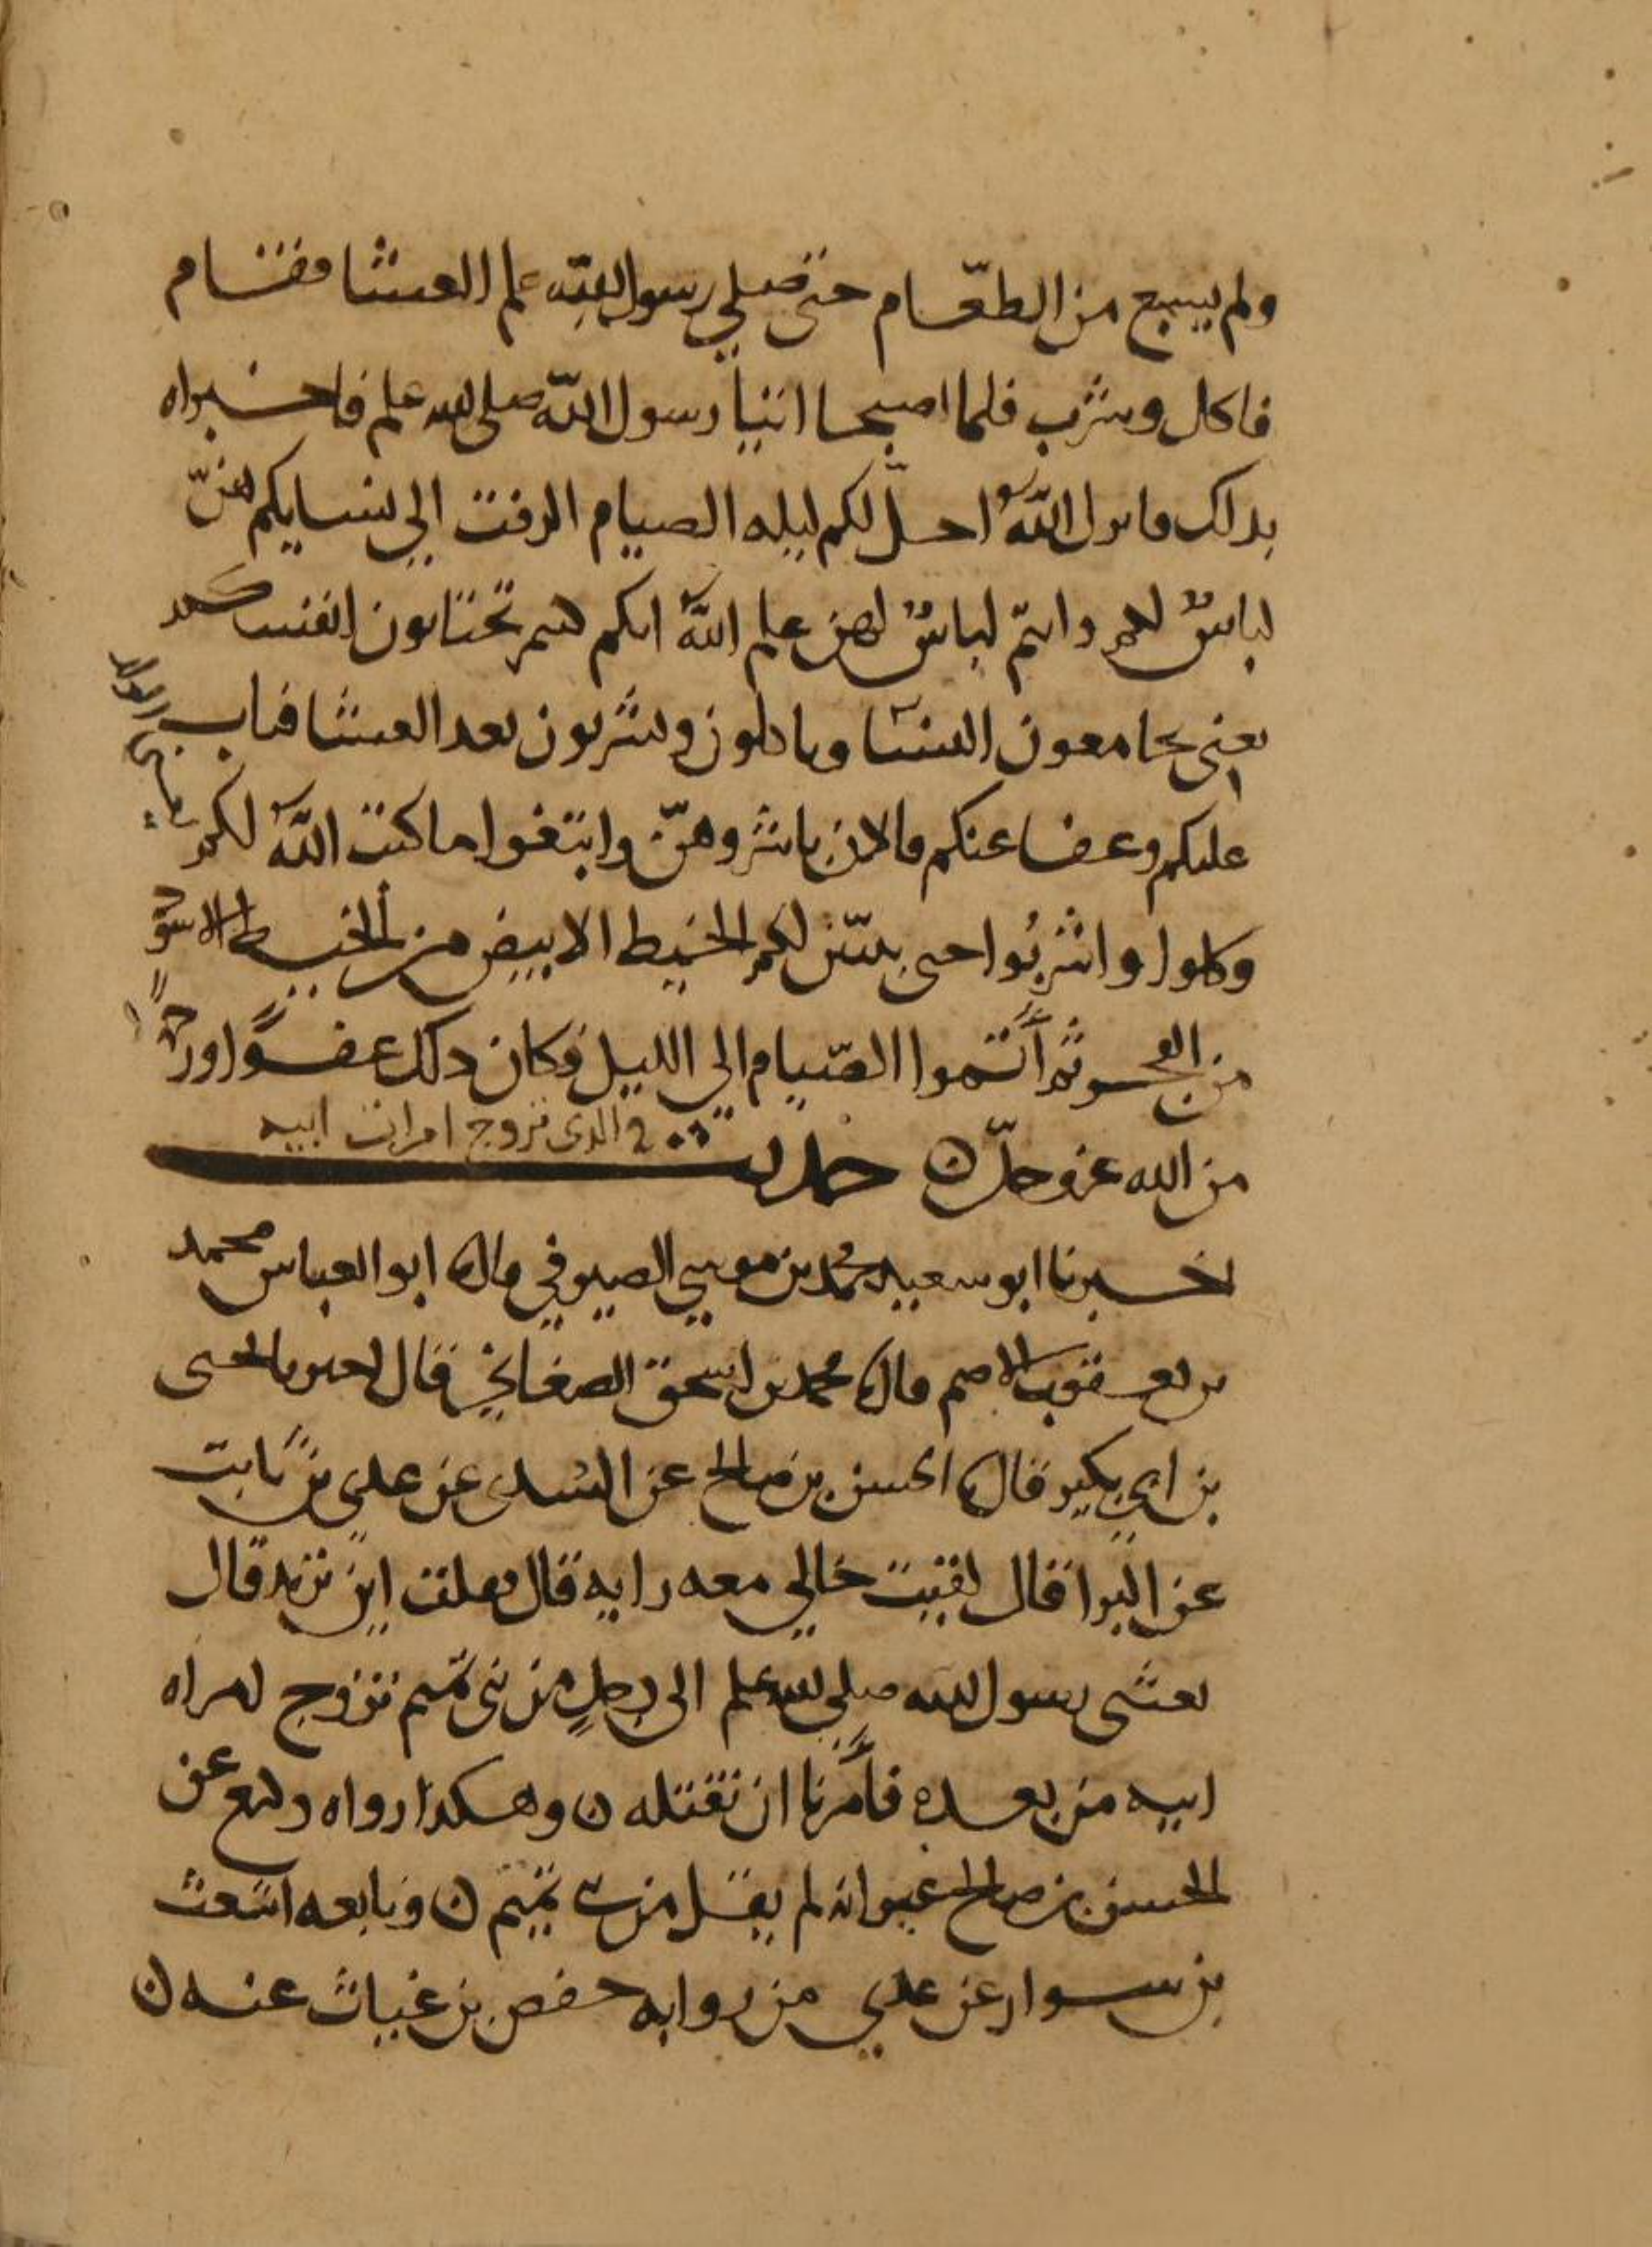 ولم يشبع من الطعام حتى صلي رسول الله صلم العشا فقام
فاكل وشرب فلما اصبحا اتيا رسول الله صلى الله علم فاخبراه
بذلك فانزل الله احل لكم ليله الصيام الرفث الي نسايكم هنّ
لباسٌ لكم وانتم لباسٌ لهن علم الله انكم كنتم تختانون انفسكم
يعني تجامعون النسا وتاكلون وتشربون بعد العشا فتاب
عليكم وعفا عنكم فالان باشروهنّ وابتغوا ما كتب الله لكم
يعني الولد
وكلوا واشربُوا حتى يتبيّن لكم الخيط الابيض من الخيط الاسود
من الفجر ثم أتموا الصّيام الي الليل فكان ذلك عفوًا ورحمةً
من الله عز وجلّ ن حديث في الذي تزوج امرات ابيه
اخبرنا ابو سعيد محمد بن موسي الصيرفي قال ابو العباس محمد
بن يعقوب الاصم قال محمد بن اسحق الصغاني قال اخبرنا يحيى
بن ابي بكير قال الحسن بن صالح عن السُدي عن عدي بن ثابت
عن البرا قال لقيت خالي معه رايه قال فقلت اين تريد قال
بعثني رسول الله صلي الله علم الى رجلٍ من بني تميم تزوج امراه
ابيه من بعده فأمرنا ان نقتله ن وهكذا رواه وكيع عن
الحسن بن صالح غير انه لم يقل من بني تميم ن وتابعه اشعث
بن سوار عن عدي من روايه حفص بن غياث عنه ن